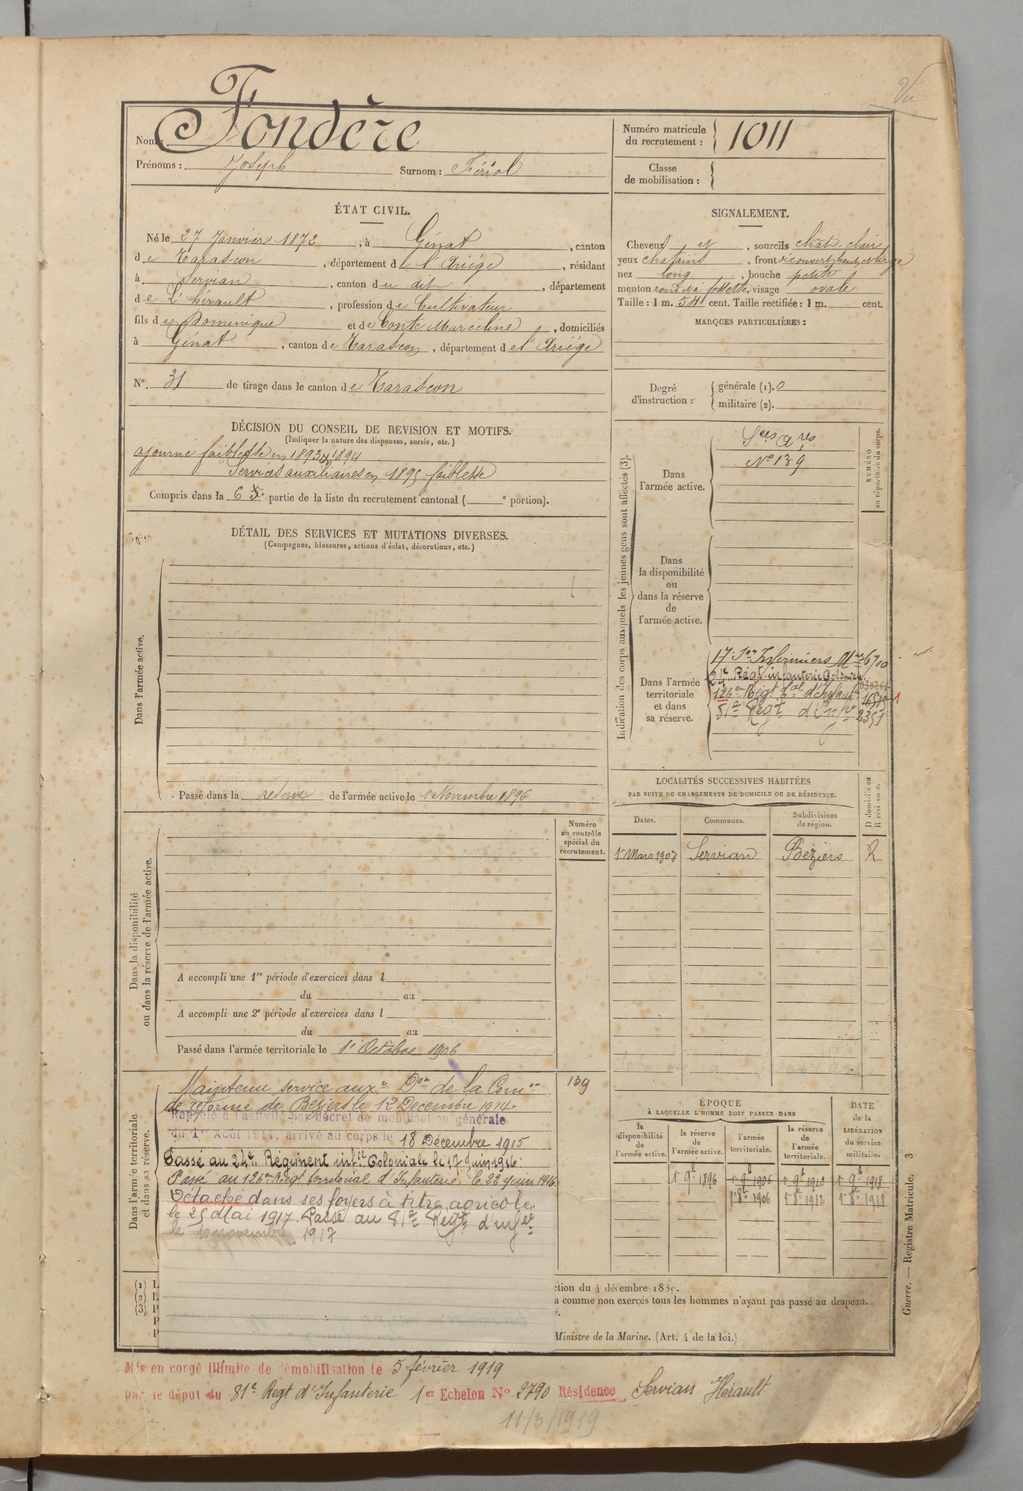 Vu
Nom : Fondère
Prénoms : Joseph Surnom : Fériol
Numéro matricule du recrutement : 1011
Classe de mobilisation :
ÉTAT CIVIL.
Né le 27 Janvier 1872, à Génat, canton
de Tarascon, département de l'Ariège, résidant
à Servian, canton du dit, département
de L'hérault, profession de Cultivateur
fils de Dominique et de Conte Marceline, domiciliés
à Génat, canton de Tarascon, département de l'Ariège
N° 31 de tirage dans le canton de Tarascon
SIGNALEMENT.
Cheveux et, sourcils chat. clair
yeux chatains, front
nez long, bouche petite
menton rond à fossette, visage ovale
Taille : 1 m. 54 cent. Taille rectifiée : 1 m. cent.
MARQUES PARTICULIÈRES :
Degré d'instruction : générale (1). 0
militaire (2).
DÉCISION DU CONSEIL DE REVISION ET MOTIFS.
(Indiquer la nature des dispenses, sursis, etc.)
ajourné faiblesse en 1893 & 1894
Services auxiliaires en 1895 faiblesse
Compris dans la 6e partie de la liste du recrutement cantonal ( portion).
DÉTAIL DES SERVICES ET MUTATIONS DIVERSES.
(Campagnes, blessures, actions d'éclat, décorations, etc.)
Dans l'armée active.
Passé dans la réserve de l'armée active le 1 Novembre 1896
Indication des corps auxquels les jeunes gens sont affectés (3).
NUMÉRO au répertoire du corps.
Dans l'armée active.
Sces Ares
N° 139
Dans la disponibilité ou dans la réserve de l'armée active.
Dans l'armée territoriale et dans sa réserve.
17 Son Infirmiers Mres 6700
24e Régt infanterie Coloniale
126e Régt tal d'Infanie 16515
81e Régt d'Infie 2351
LOCALITÉS SUCCESSIVES HABITÉES
PAR SUITE DE CHANGEMENTS DE DOMICILE OU DE RÉSIDENCE.
Dates. Communes. Subdivisions de région. D domicile ou R résidence.
1 Mars 1907 Servian Béziers R
Numéro au contrôle spécial du recrutement.
Dans la disponibilité ou dans la réserve de l'armée active.
A accompli une 1re période d'exercices dans l
du au
A accompli une 2e période d'exercices dans l
du au
Passé dans l'armée territoriale le 1er Octobre 1906
139
Dans l'armée territoriale et dans sa réserve.
Maintenu service auxre Don de la Comon
de réforme de Béziers le 12 Décembre 1914.
Rappelé à l'activité par décret de mobilisation générale
du 1er Août 1914, arrivé au corps le 18 Décembre 1915
Passé au 24e Régiment infie Coloniale le 17 juin 1916
Passé au 126e Régt territorial d'Infanterie le 22 juin 1916
Détaché dans ses foyers à titre agricole
le 25 Mai 1917. Passé au 81e Régt d'infie
le 10 novembre 1917
ÉPOQUE
À LAQUELLE L'HOMME DOIT PASSER DANS
DATE de la LIBÉRATION du service militaire.
la disponibilité de l'armée active. la réserve de l'armée active. l'armée territoriale. la réserve de l'armée territoriale.
1 9e 1896 1 9e 1906 1 9e 1912 1 9e 1918
1 8e 1906 1 8e 1912 1 8e 1918
(1) L
(2) L
(3) P
P
ction du 4 décembre 1889.
a comme non exercés tous les hommes n'ayant pas passé au drapeau.
Ministre de la Marine. (Art. 4 de la loi.)
Guerre. — Registre Matricule. 3
Mis en congé illimité de démobilisation le 5 février 1919
par le dépôt du 81e Regt d'Infanterie 1er Echelon N° 2790 Résidence Servian Hérault
11/3/1919